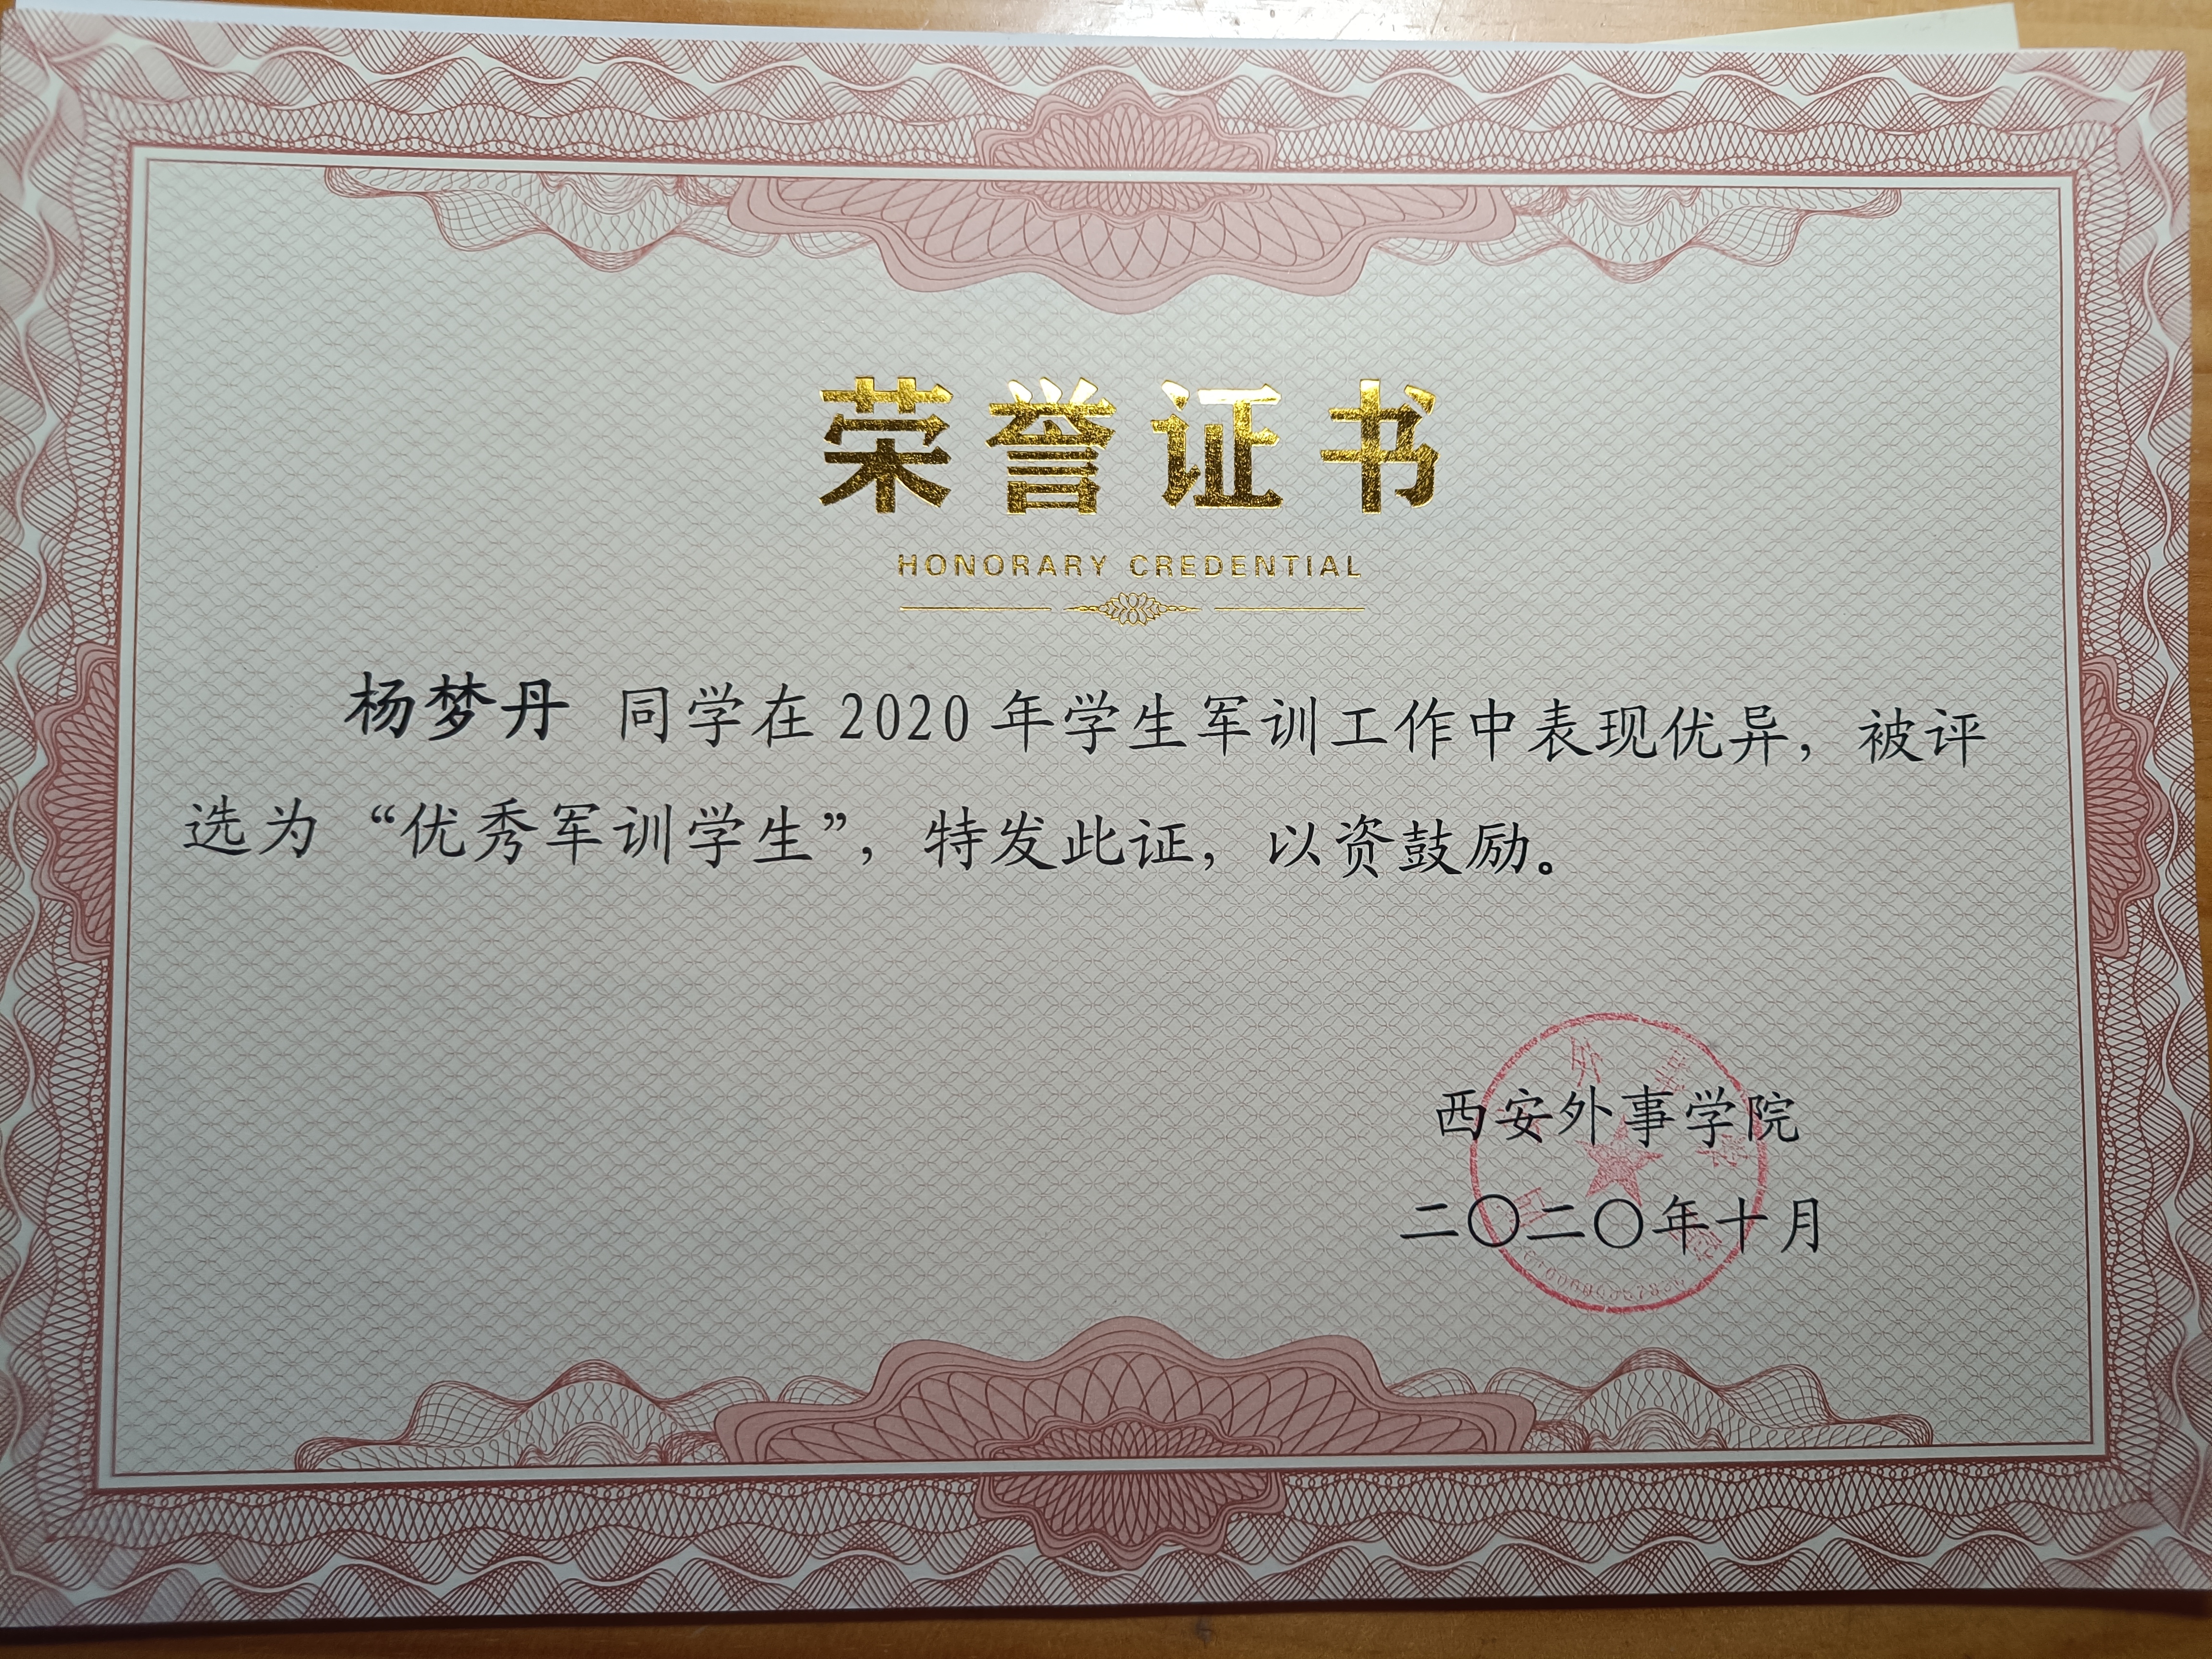 荣誉证书
HONORARY CREDENTIAL
杨梦丹 同学在 2020 年学生军训工作中表现优异，被评
选为“优秀军训学生”，特发此证，以资鼓励。
西安外事学院
二〇二〇年十月